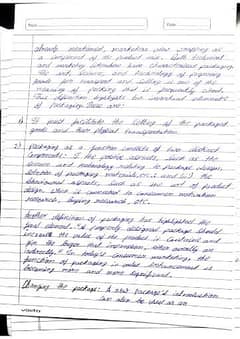 Date
already mentioned, marketers view packaging as
a component of the product mix. Both technical
and marketing literature have characterised packaging
the art, science, and technology of preparing
goods for transport and selling is one of the
meaning of packing that is frequently cited.
This definition highlights two important elements
of packaging these are:
1) It must facilitate the selling of the packaged
goods and their physical transportation.
2) Packaging as a function consists of two distinct
components: I the physical aspects, such as the
science and technology relating to package design,
selection of packaging materials, etc.; and (ii) the
behavioural aspects, such as the art of product
design, which is concerned consumer motivation
research, buying research, etc.
Another definition of packaging has highlighted the
final demand. A properly designed package should
increase the value of the product is contained and
give the buyer that impression, either directly or
indirectly. In today's consumer marketing, the
function of packaging in value enhancement is
becoming more and more significant.
Changing the package: A new package's introduction
can also be used as an